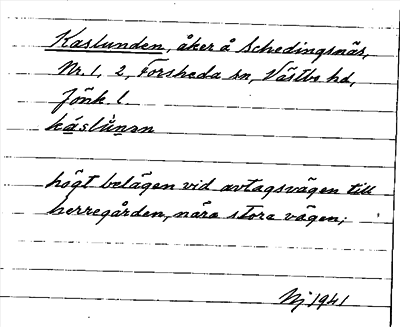 Kaslunden, åker å Schedingsnäs,
Nr. 1, 2, Forsheda sn, Västbo hd,
Jönk. l.
káslùnən
högt belägen vid avtagsvägen till
herregården, nära stora vägen;
Nj 1941